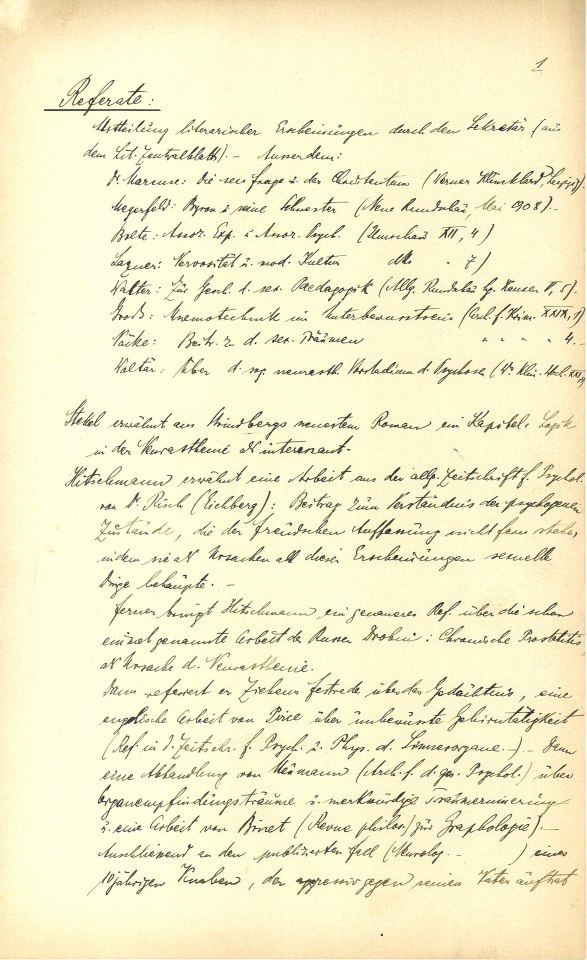 1
Referate:
Mitteilung literarischer Erscheinungen durch den Sekretär (aus
dem Lit. Zentralblatt). – Ausserdem:
Dr Marcuse: Die sex frage u. das Christentum (Verner Klinckhard, Leipzig).
Magerfeld: Byron u seine Schwester (Neue Rundschau, Mai 1908). –
Bolte: Assoz. Exp. u Assoz. Psych. (Umschau XII, 4)
Nervosität u. mod. Kultur dtto " 7)
Walter: Zur Gesch. d. sex. Paedagogik (Allg. Rundschau hg. Kausen V, 5).
Gross: Mnemotechnik im Unterbewusstsein (Arch. f. Krim. XXIX, 1)
Näcke: Beitr. z d. sex. Träumen " " " " 4. –
Über d. sog neurasth. Vorstadium d. Psychosen (Wr. Klin.
Stekel erwähnt aus Strindbergs neuestem Roman ein Kapitel. Logik
in der Neurasthenie als interessant. –
Hitschmann erwähnt eine Arbeit aus der allg. Zeitschrift f. Psychol.
von Dr. Risch (Eichberg): Beitrag zum Verständnis der psychogenen
Zustände, die der freudschen Auffassung nicht fern stehe,
indem sie als Ursachen all dieser Erscheinungen sexuelle
Dinge behaupte. –
ferner bringt Hitschmann ein genaueres Ref. über die schon
einmal genannte Arbeit des Russen Drobni: Chronische Prostatitis
als Ursache d. Neurasthenie.
Dann referiert er Ziehens festrede über das Gedächtnis, eine
englische Arbeit von Pirce über unbewusste Gehirntätigkeit
(Ref. in d. Zeitschr. f. Psych. u. Phys. d. Sinnesorgane. –). – Dann
eine Abhandlung von Meumann (Arch. f. d. ges. Psychol.) über
Organempfindungsträume u. merkwürdige Traumerinnerung
u. eine Arbeit von Binet (Revue philos.) zur Graphologie). –
Anschliessend an den publizierten fall (Neurolog. – ) eines
10jährigen Knaben, der aggressiv gegen seinen Vater auftrat